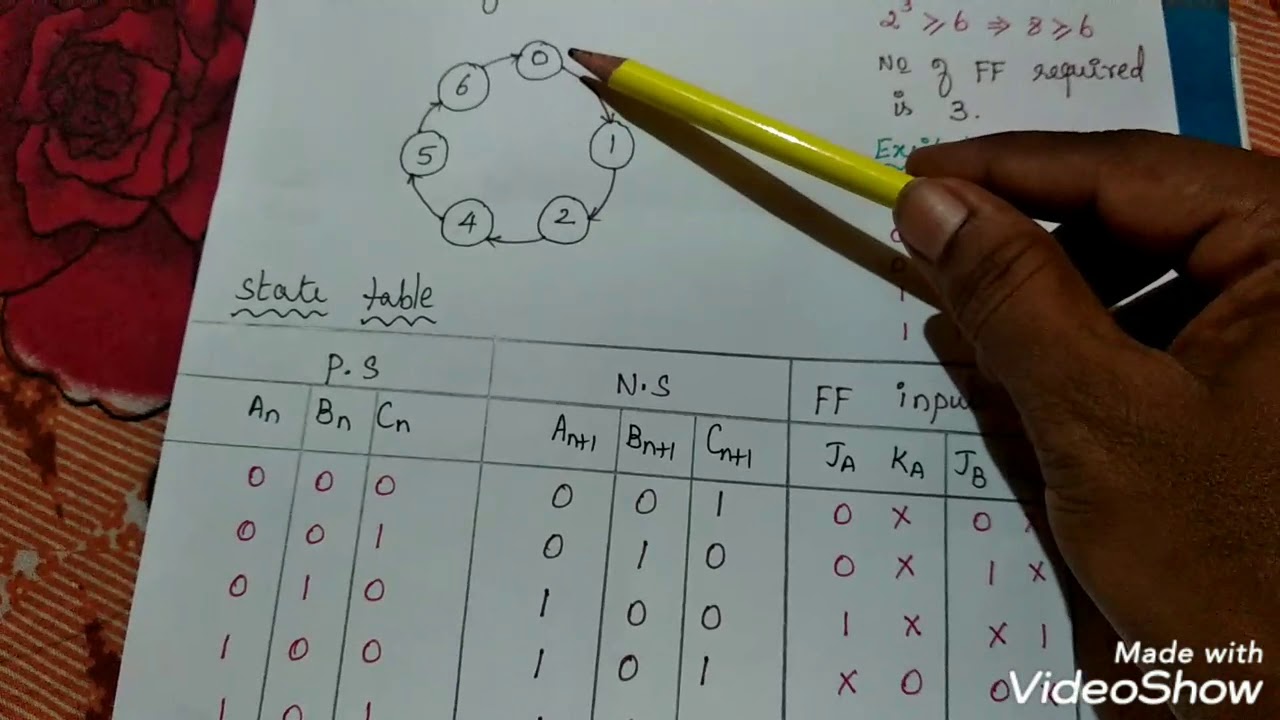 2³ ≥ 6 ⇒ 8 ≥ 6
No of FF required
is 3.
0
1
2
4
5
6
0
1
1
state table
P.S N.S FF
An Bn Cn An+1 Bn+1 Cn+1 JA KA JB
0 0 0 0 0 1 0 X 0
0 0 1 0 1 0 0 X 1 X
0 1 0 1 0 0 1 X X 1
1 0 0 1 0 1 X 0 0
1 0 1
Made with
VideoShow